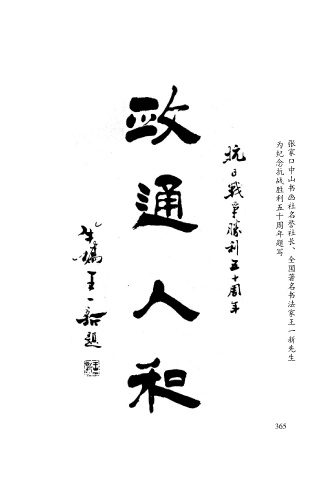 张家口中山书画社名誉社长、全国著名书法家王一新先生
为纪念抗战胜利五十周年题写
抗日戰爭勝利五十周年
政通人和
王一新題
365